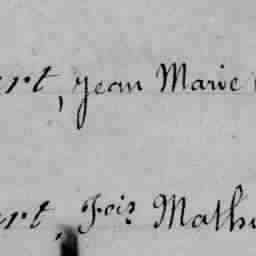 ert, Jean Marie
ert, Fois Mathu